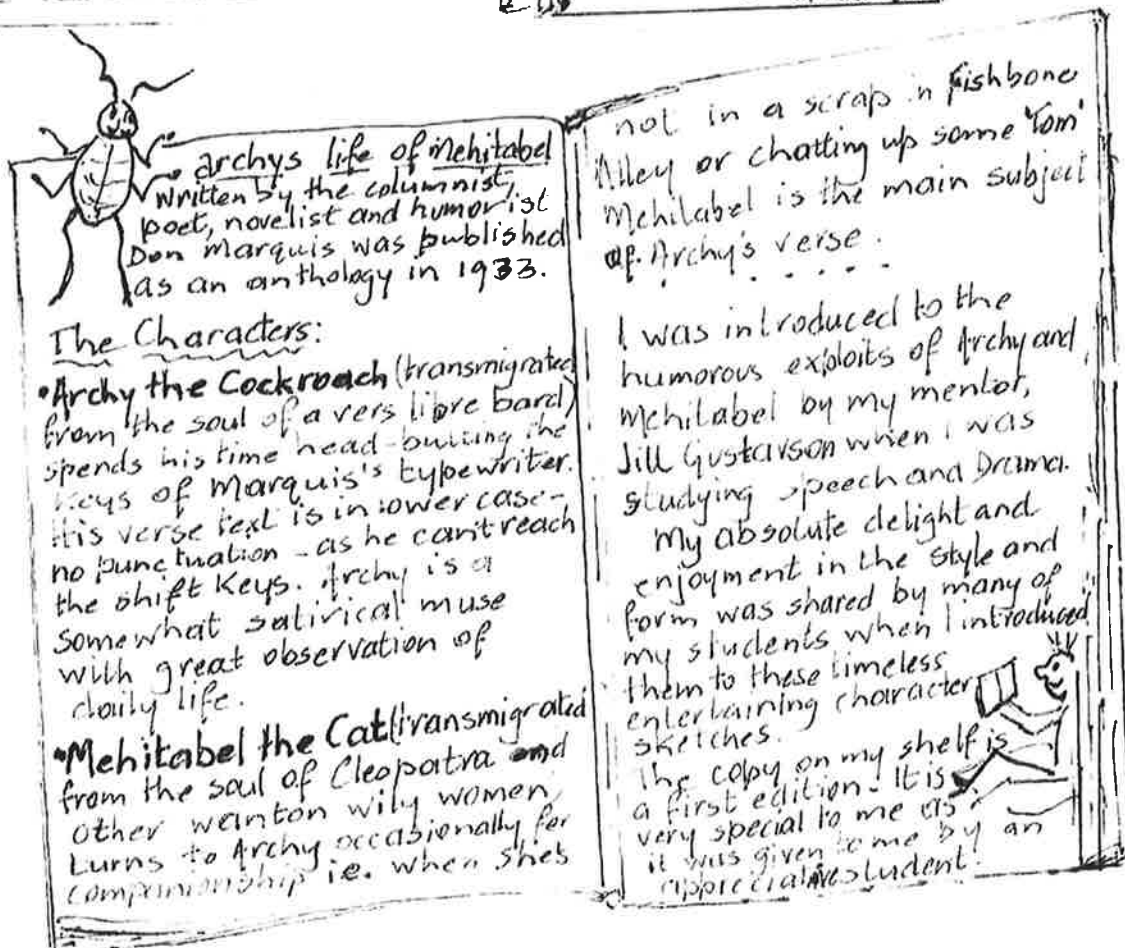 archys life of Mehitabel
written by the columnist,
poet, novelist and humorist
Don Marquis was published
as an anthology in 1933.
The Characters:
•Archy the Cockroach (transmigrated
from the soul of a vers libre bard)
spends his time head-butting the
keys of Marquis's typewriter.
His verse text is in lower case-
no punctuation - as he can't reach
the shift Keys. Archy is a
somewhat satirical muse
with great observation of
daily life.
•Mehitabel the Cat (transmigrated
from the soul of Cleopatra and
other wanton wily women,
turns to Archy occasionally for
companionship ie. when she's
not in a scrap in Fishbone
Alley or chatting up some 'Tom'
Mehitabel is the main subject
of Archy's verse.
I was introduced to the
humorous exploits of Archy and
Mehitabel by my mentor,
Jill Gustavson when I was
studying Speech and Drama.
My absolute delight and
enjoyment in the style and
form was shared by many of
my students when I introduced
them to these timeless
entertaining character
sketches.
The copy on my shelf is
a first edition - It is
very special to me as
it was given to me by an
appreciative student.